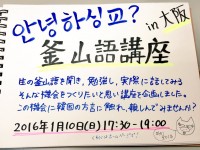 안녕하싱교?
in 大阪
釜山語講座
生の釜山語を聞き、勉強し、実際に話してみる
そんな機会をつくりたいと思い講座を企画しました。
この機会に韓国の方言に触れ、親しんでみませんか?
2016年1月10日(日) 17:30-19:00